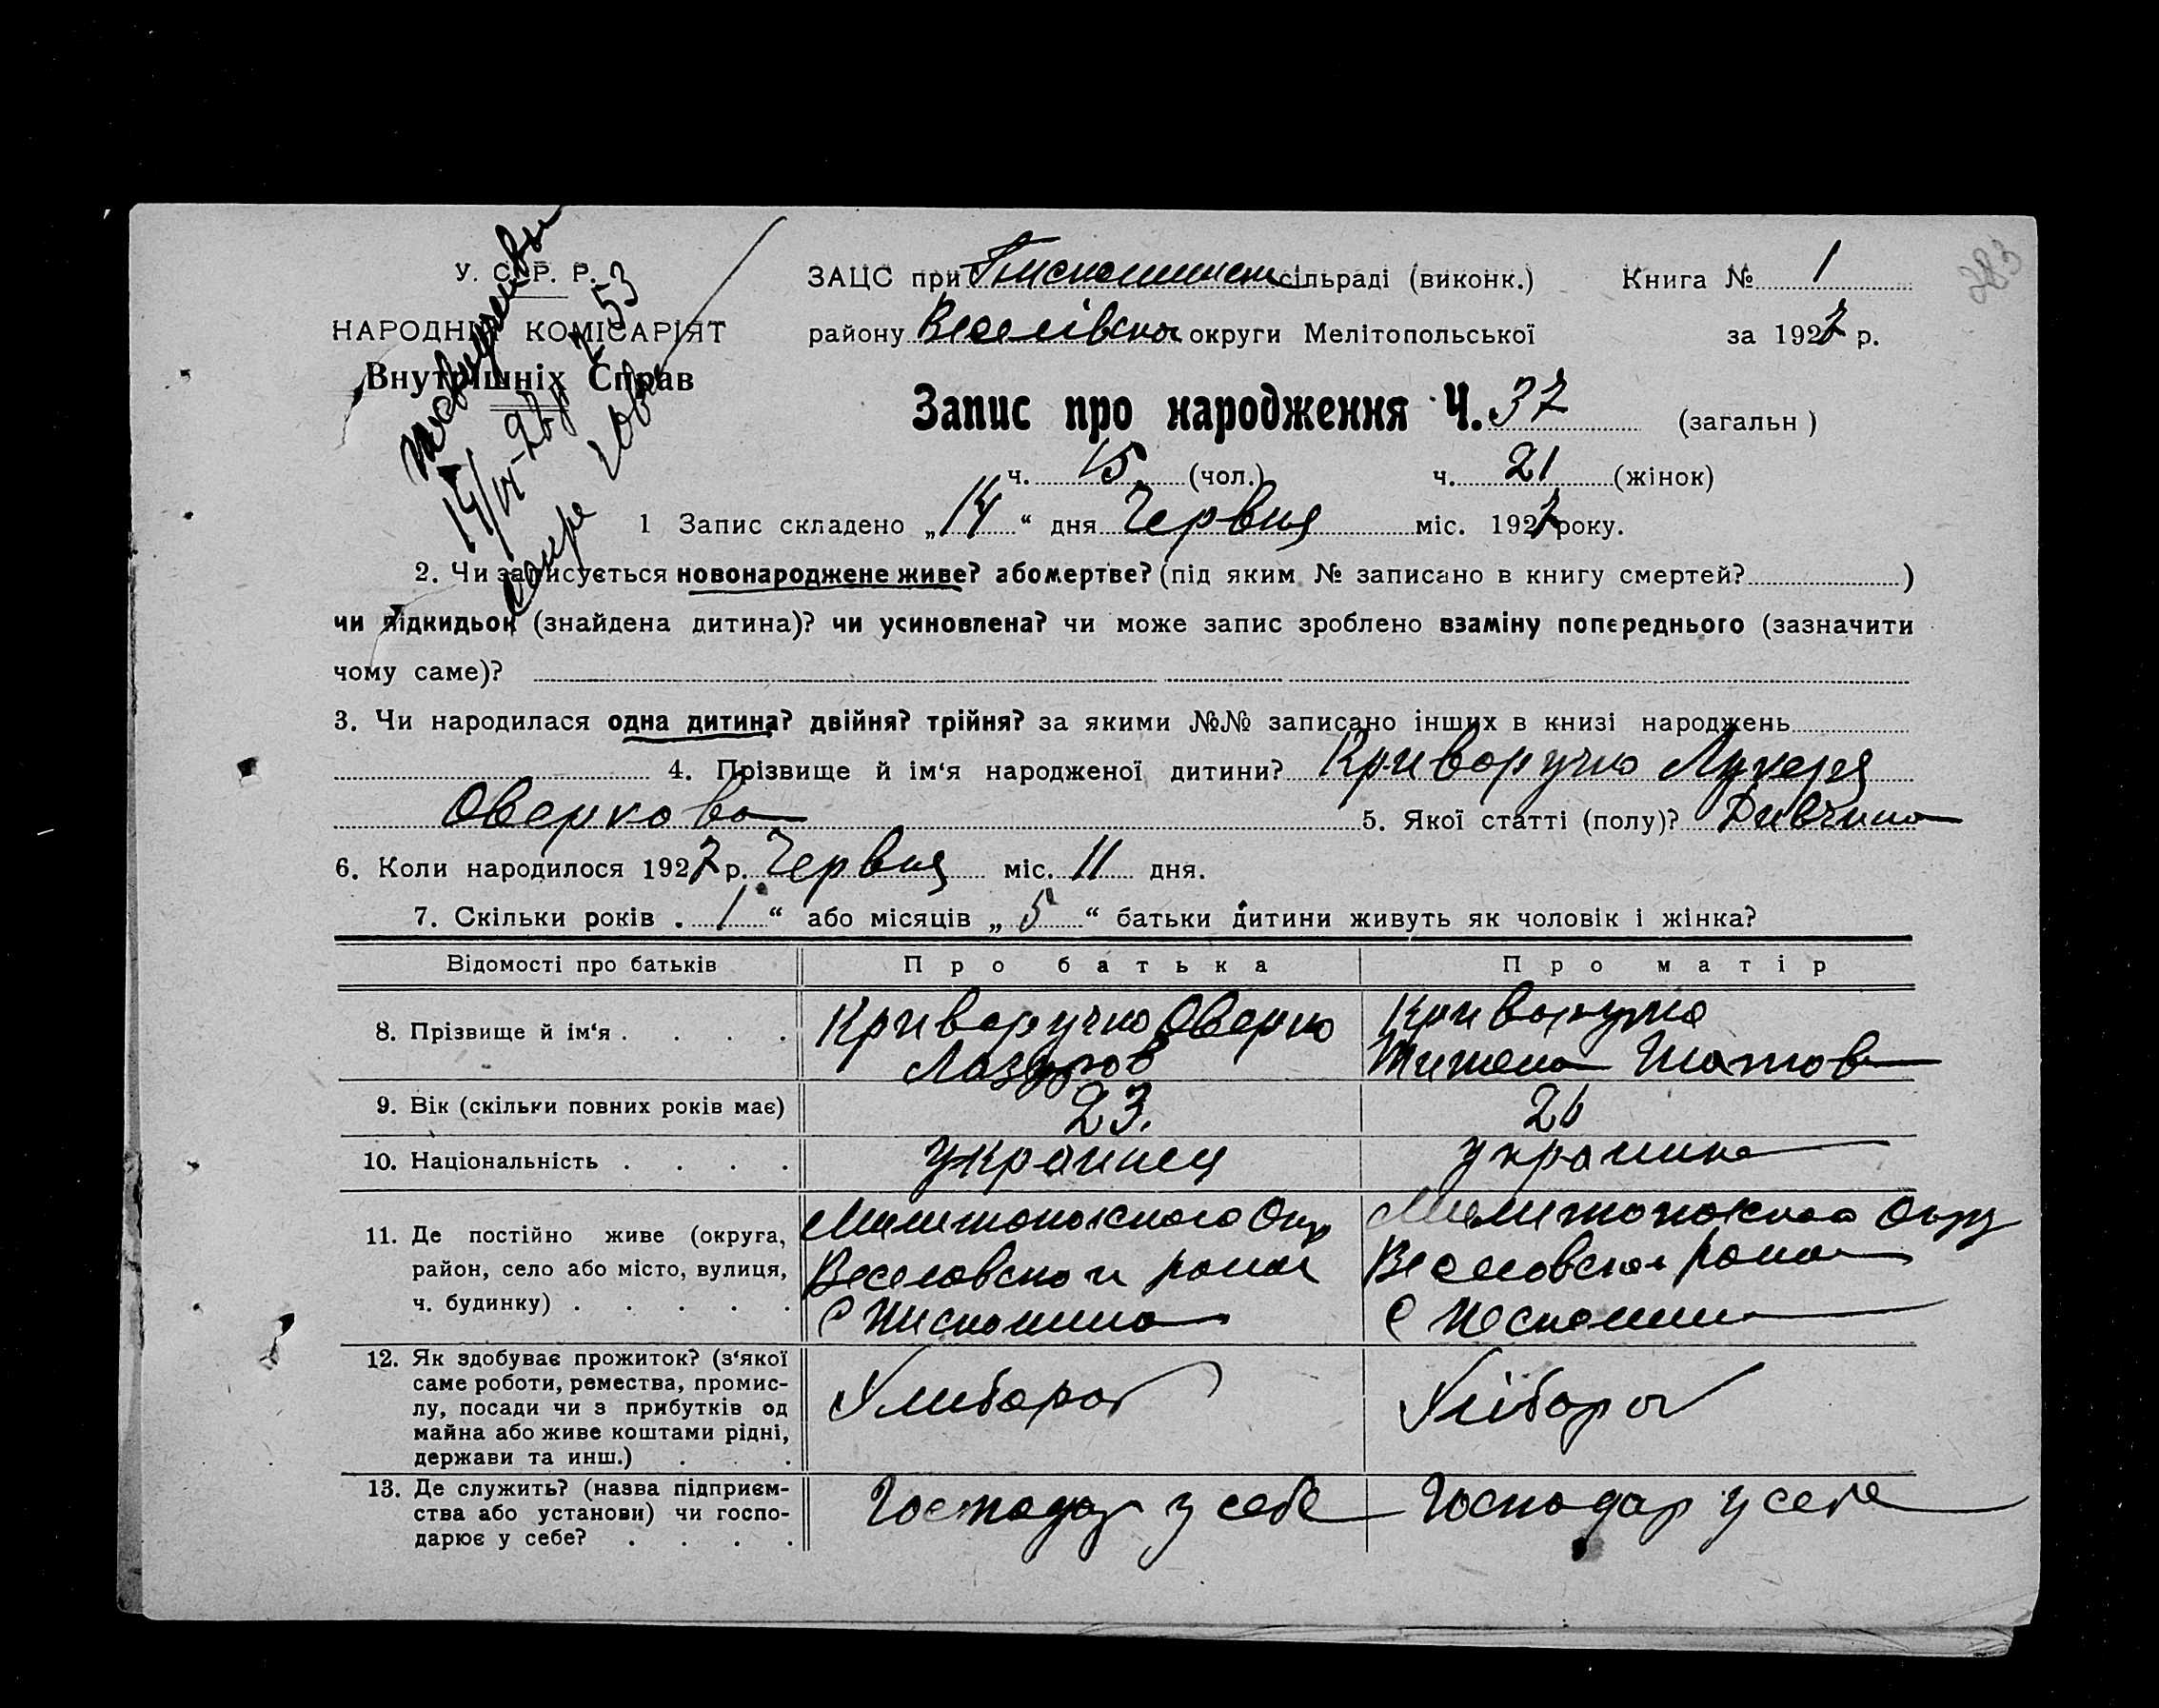 У. С. Р. Р.
НАРОДНІЙ КОМІСАРІЯТ
Внутрішніх Справ
ЗАЦС при сільраді (виконк.) Книга № 1
району Веселівська округи Мелітопольської за 1927 р.
283
Запис про народження Ч. 37 (загальн)
ч. 15 (чол.) ч. 21 (жінок)
1 Запис складено „14“ дня Червня міс. 1927 року.
2. Чи записується новонароджене живе? або мертве? (під яким № записано в книгу смертей? )
чи підкидьок (знайдена дитина)? чи усиновлена? чи може запис зроблено взаміну попереднього (зазначити
чому саме)?
3. Чи народилася одна дитина? двійня? трійня? за якими №№ записано інших в книзі народжень
4. Прізвище й ім‘я народженої дитини? Криворучко Лукеря
Оверкова 5. Якої статті (полу)? Дивчина
6. Коли народилося 1927 р. Червня міс. 11 дня.
7. Скільки років . 1 “ або місяців „ 5 “ батьки дитини живуть як чоловік і жінка?
Відомості про батьків Про батька Про матір
8. Прізвище й ім‘я . . . . Криворучко Оверко Криворучко
9. Вік (скільки повних років має) 23. 26
10. Національність . . . . Украинец Украинка
11. Де постійно живе (округа,
район, село або місто, вулиця,
ч. будинку) . . . . .
12. Як здобуває прожиток? (з‘якої
саме роботи, ремества, промис-
лу, посади чи з прибутків од
майна або живе коштами рідні,
держави та инш.) . . Хлибороб Хлібороб
13. Де служить? (назва підприєм-
ства або установи) чи госпо-
дарює у себе? . . . . Господар у себе Господар у себе